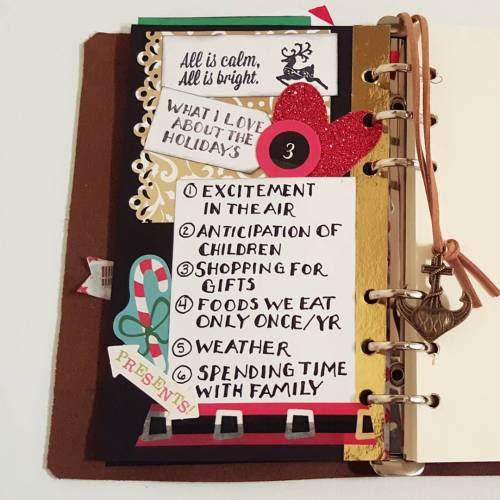 All is calm,
All is bright.
WHAT I LOVE
ABOUT THE
HOLIDAYS
3
① EXCITEMENT
IN THE AIR
② ANTICIPATION OF
CHILDREN
③ SHOPPING FOR
GIFTS
④ FOODS WE EAT
ONLY ONCE/YR
⑤ WEATHER
⑥ SPENDING TIME
WITH FAMILY
PRESENTS!